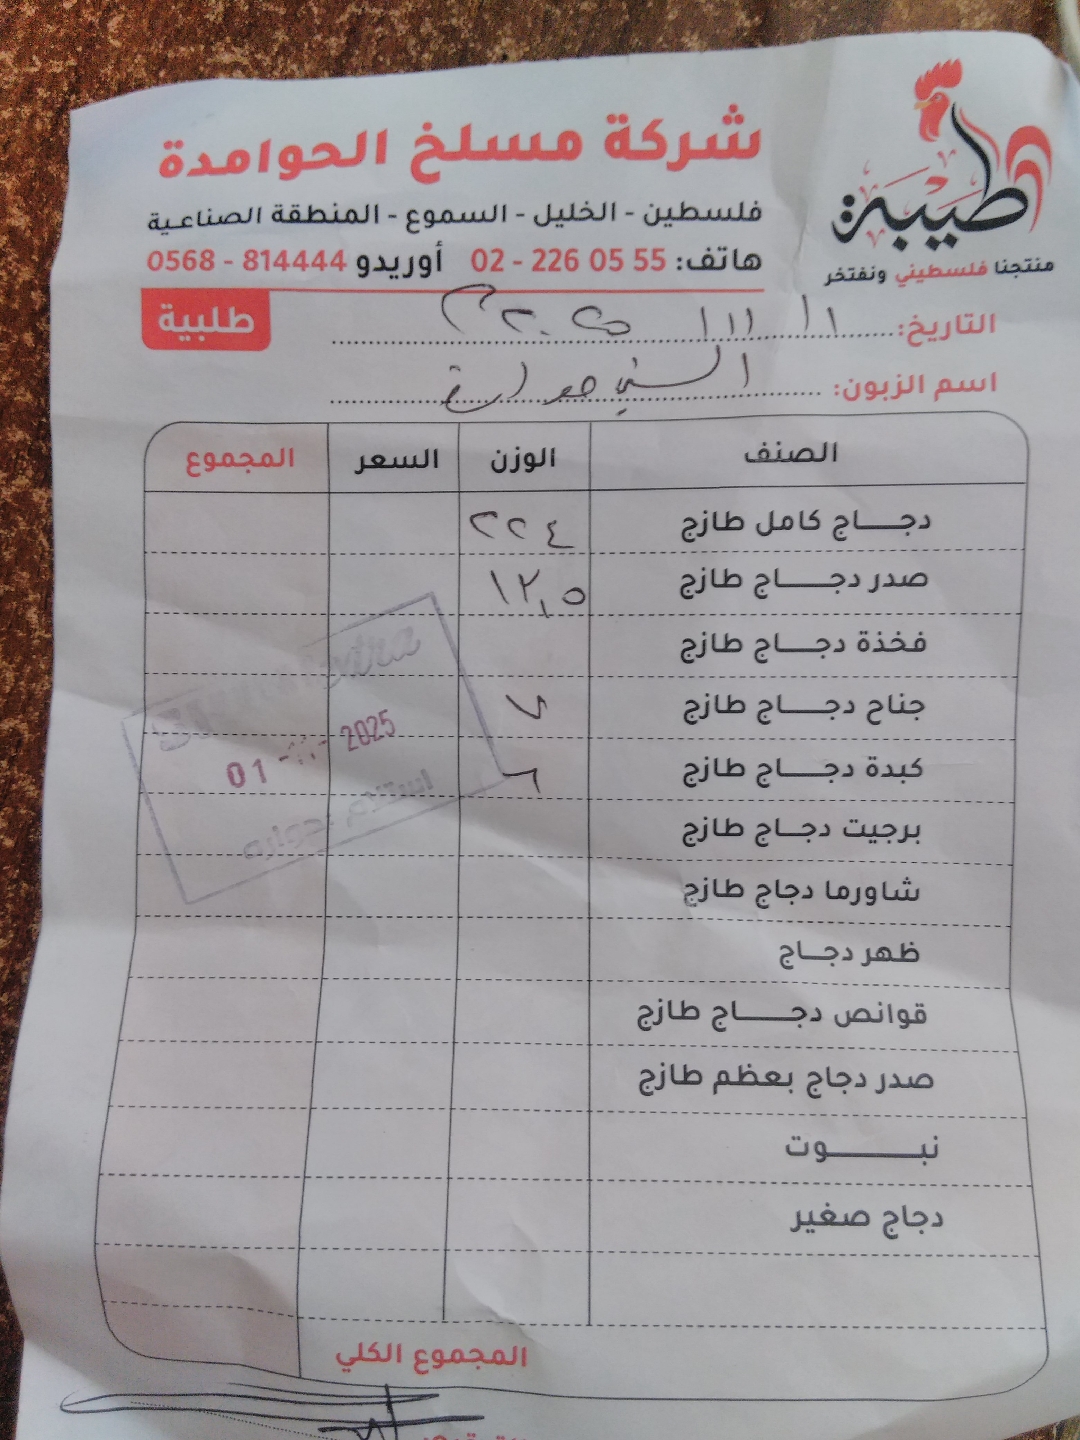 طيبة
منتجنا فلسطيني ونفتخر
شركة مسلخ الحوامدة
فلسطين - الخليل - السموع - المنطقة الصناعية
هاتف: 02 - 226 05 55 أوريدو 0568 - 814444
طلبية
التاريخ: ١ / ١١ / ٢٠٢٥م
اسم الزبون: السني حوارة
الصنف الوزن السعر المجموع
دجاج كامل طازج ٢٢٤
صدر دجاج طازج ١٢,٥
فخذة دجاج طازج
جناح دجاج طازج ٧
كبدة دجاج طازج ٦
برجيت دجاج طازج
شاورما دجاج طازج
ظهر دجاج
قوانص دجاج طازج
صدر دجاج بعظم طازج
نبوت
دجاج صغير
المجموع الكلي
01 2025
استلام حوارة